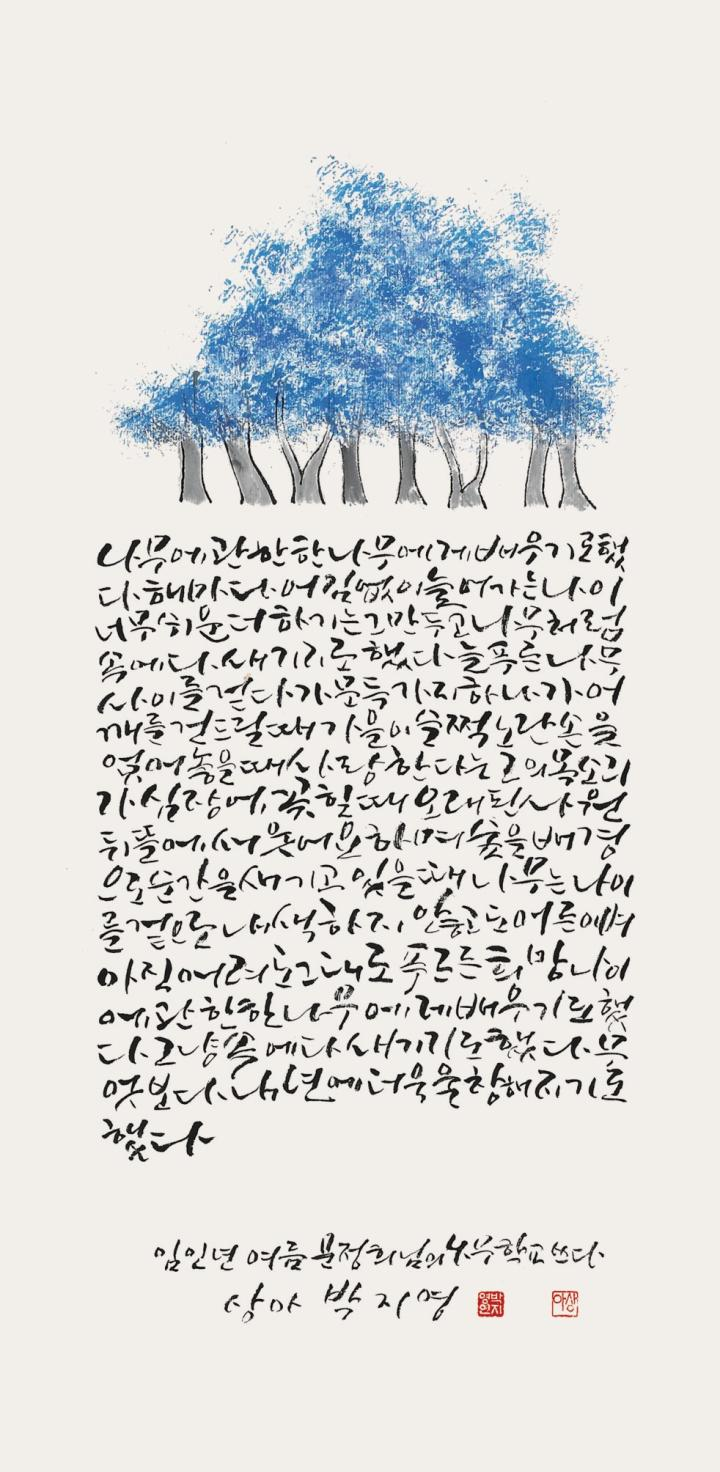 나무에 관한 한 나무에게 배우기로 했
다 해마다 어김없이 늘어가는 나이
너무 쉬운 더하기는 그만두고 나무처럼
속에다 새기기로 했다 늘 푸른 나무
사이를 걷다가 문득 가지 하나가 어
깨를 건드릴 때 가을이 슬쩍 노란 손을
얹어놓을 때 사랑한다는 그의 목소리
가 심장에 꽂힐 때 오래된 사원
뒤뜰에서 웃어요 하며 숲을 배경
으로 순간을 새기고 있을 때 나무는 나이
를 겉으로 내색하지 않고도 어른이며
아직 어려도 그대로 푸르른 희망 나이
에 관한 한 나무에게 배우기로 했
다 그냥 속에다 새기기로 했다 무
엇보다 내년에 더욱 울창해지기로
했다
임인년 여름 문정희님의 나무학교 쓰다
상아 박지영
박지영
상아